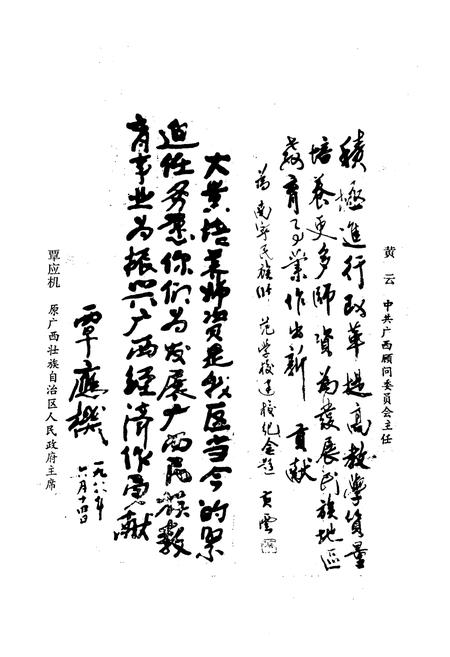 黄云 中共广西顾问委员会主任
積極進行改革提高教學質量
培养更多師資为發展民族地區
教育事業作出新貢献
为南宁民族师范学校建校纪念题 黄雲
大量培养师资是我区当今的紧
迫任务愿你们为发展广西民族教
育事业为振兴广西经济作贡献
覃應機
六月十四日
覃应机 原广西壮族自治区人民政府主席